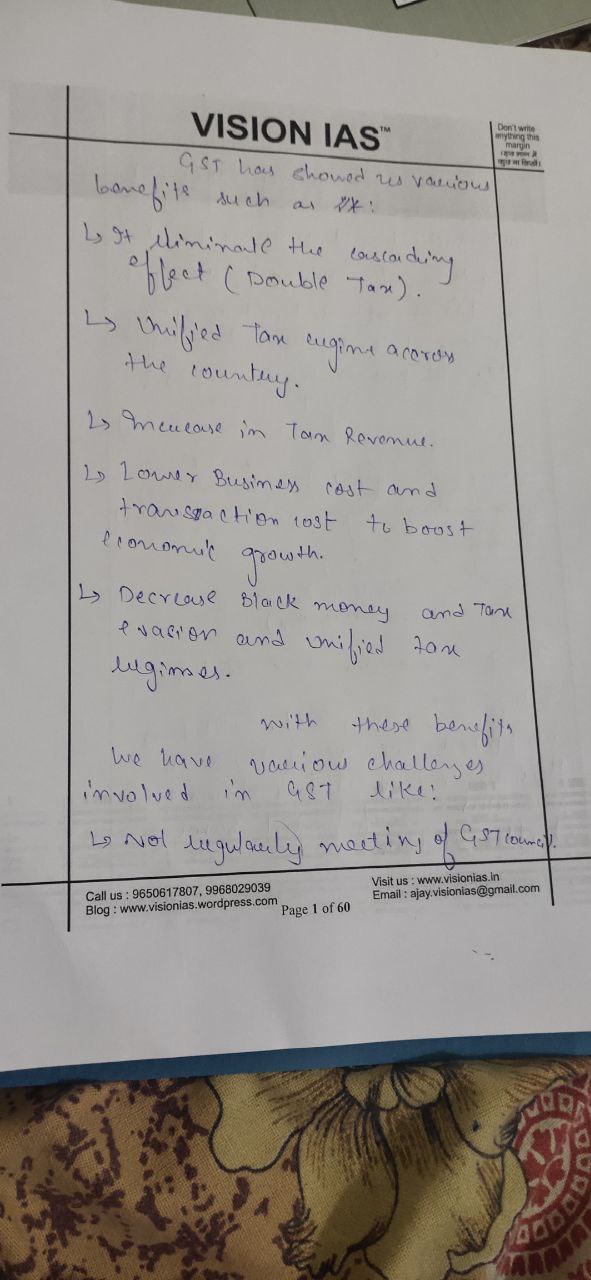 VISION IAS™
Don't write
anything this
margin
GST has showed us various
benefits such as :
↳ It eliminate the cascading
effect (Double Tax).
↳ Unified Tax regime accross
the country.
↳ Increase in Tax Revenue.
↳ Lower Business cost and
transaction cost to boost
economic growth.
↳ Decrease Black money and Tax
evasion and unified tax
regimes.
with these benefits
we have various challenges
involved in GST like:
↳ Not regularly meeting of GST council.
Call us : 9650617807, 9968029039
Visit us : www.visionias.in
Blog : www.visionias.wordpress.com
Page 1 of 60
Email : ajay.visionias@gmail.com